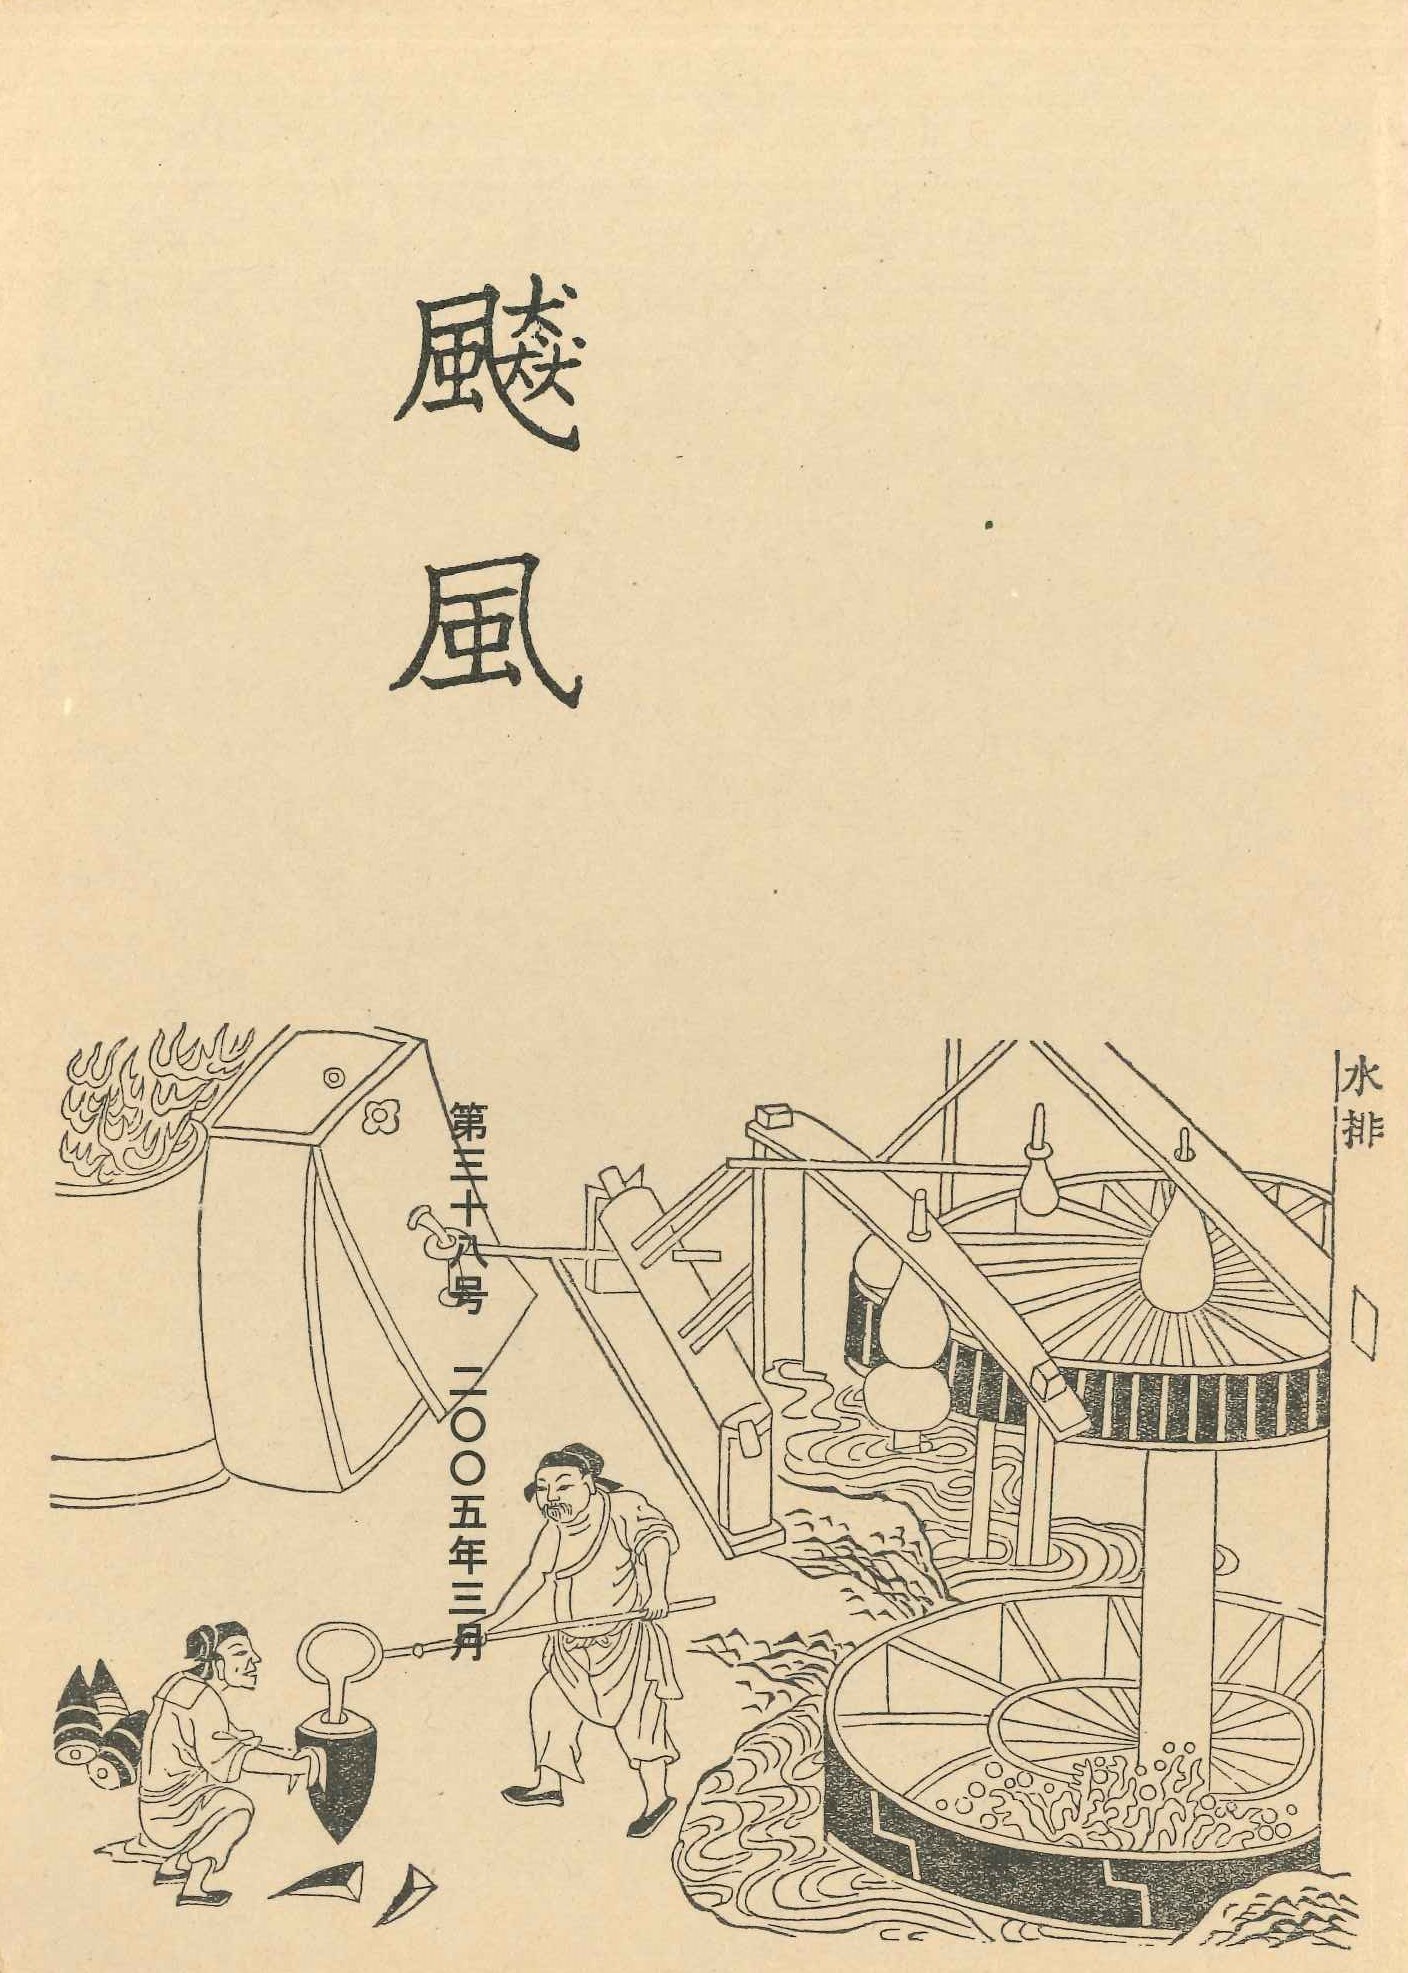 飈風
水排
第三十八号　二〇〇五年三月